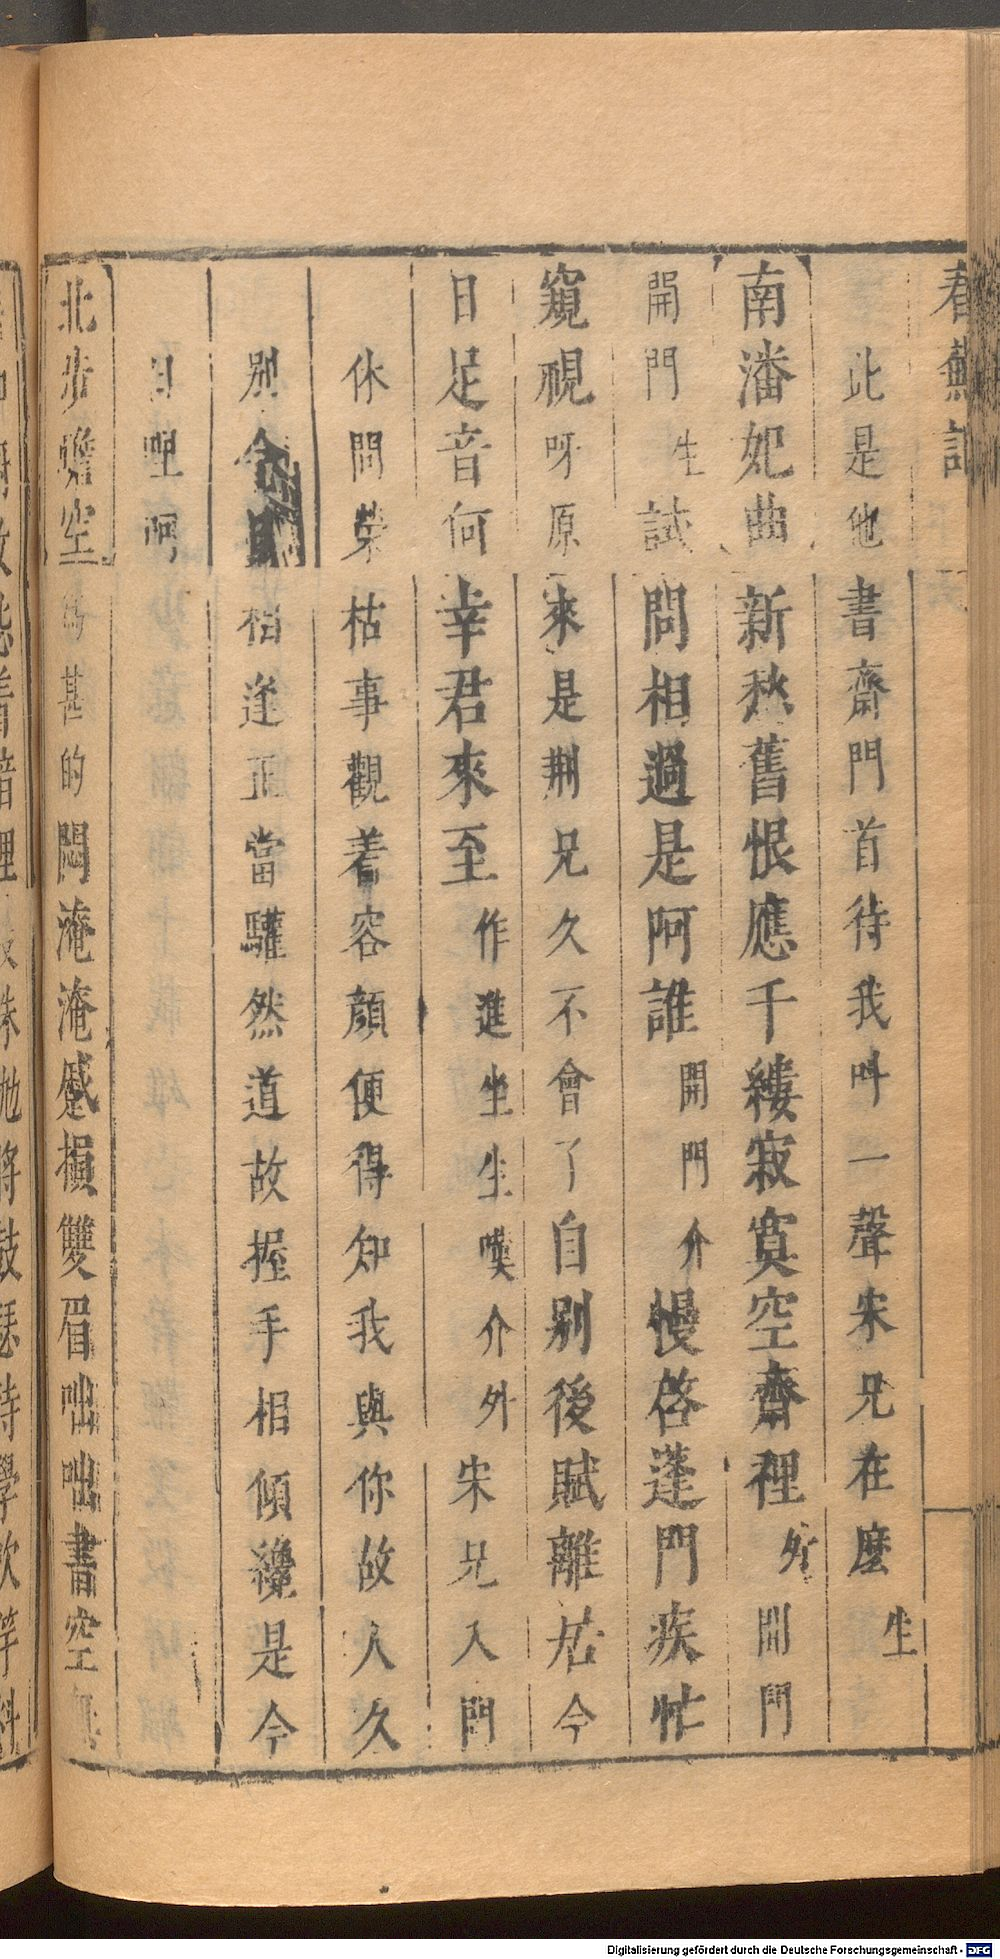 春蕪記
此是他書齋門首待我叫一聲宋兄在麼生
南潘妃曲新愁舊恨應千縷寂寞空齋裡外開門
開門生試問相過是阿誰開門介慢啓蓬門疾忙
窺視呀原來是荆兄久不會了自别後賦離居今
日足音何幸君來至作進坐生嘆介外宋兄入門
休問榮枯事觀着容顔便得知我與你故人久
別今相逢正當驩然道故握手相傾纔是今
日哩呵
北步蟾空爲甚的悶淹淹蹙損雙眉咄咄書空
Digitalisierung gefördert durch die Deutsche Forschungsgemeinschaft - DFG